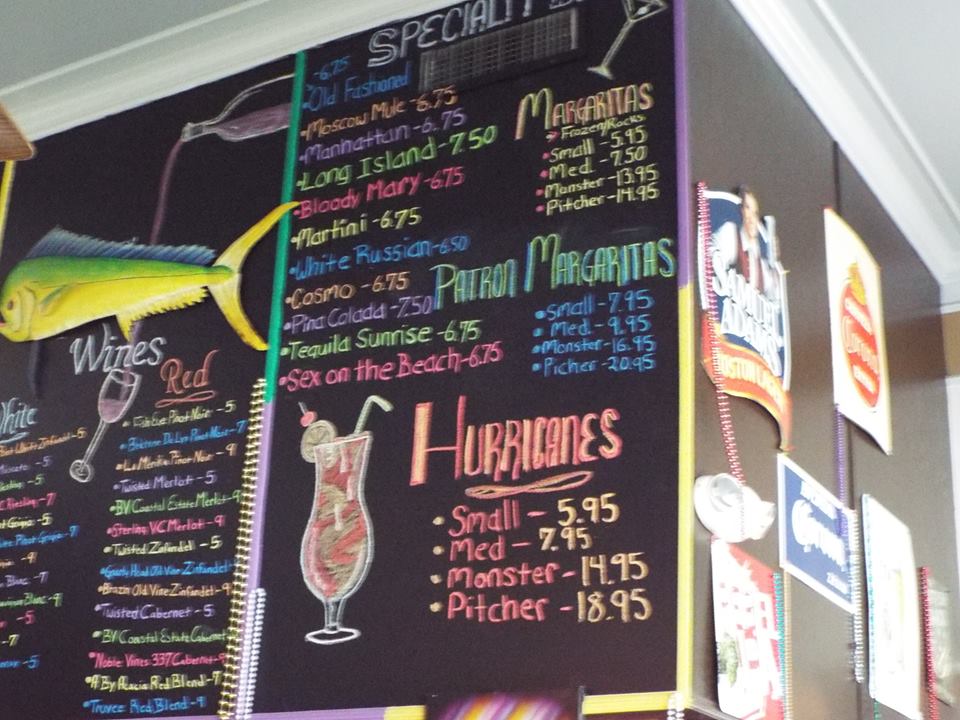 SPECIALTY
-6.75
•Old Fashioned
•Moscow Mule -6.75
•Manhattan -6.75
•Long Island -7.50
•Bloody Mary -6.75
•Martini -6.75
•White Russian -6.50
•Cosmo -6.75
•Pina Colada -7.50
•Tequila Sunrise -6.75
•Sex on the Beach -6.75
MARGARITAS
Frozen/Rocks
•Small -5.95
•Med. -7.50
•Monster -13.95
•Pitcher -14.95
PATRON MARGARITAS
•Small -7.95
•Med. -9.95
•Monster -16.95
•Picher -20.95
HURRICANES
•Small - 5.95
•Med - 7.95
•Monster - 14.95
•Pitcher - 18.95
Wines
White
Riesling -7
Blanc -7
Red
•Fish Eye Pinot Noir -5
Pinot Noir -7
•La Merika Pinot Noir -9
•Twisted Merlot -5
•BV Coastal Estate Merlot -9
•Sterling VC Merlot -9
•Twisted Zinfandel -5
Old Vine Zinfandel
•Brazin Old Vine Zinfandel -9
•Twisted Cabernet -5
•BV Coastal Estate Cabernet
•Noble Vines 337 Cabernet -9
•A By Acacia Red Blend -7
Red Blend -9
SAMUEL
ADAMS
BOSTON LAGER
Corona
Corona